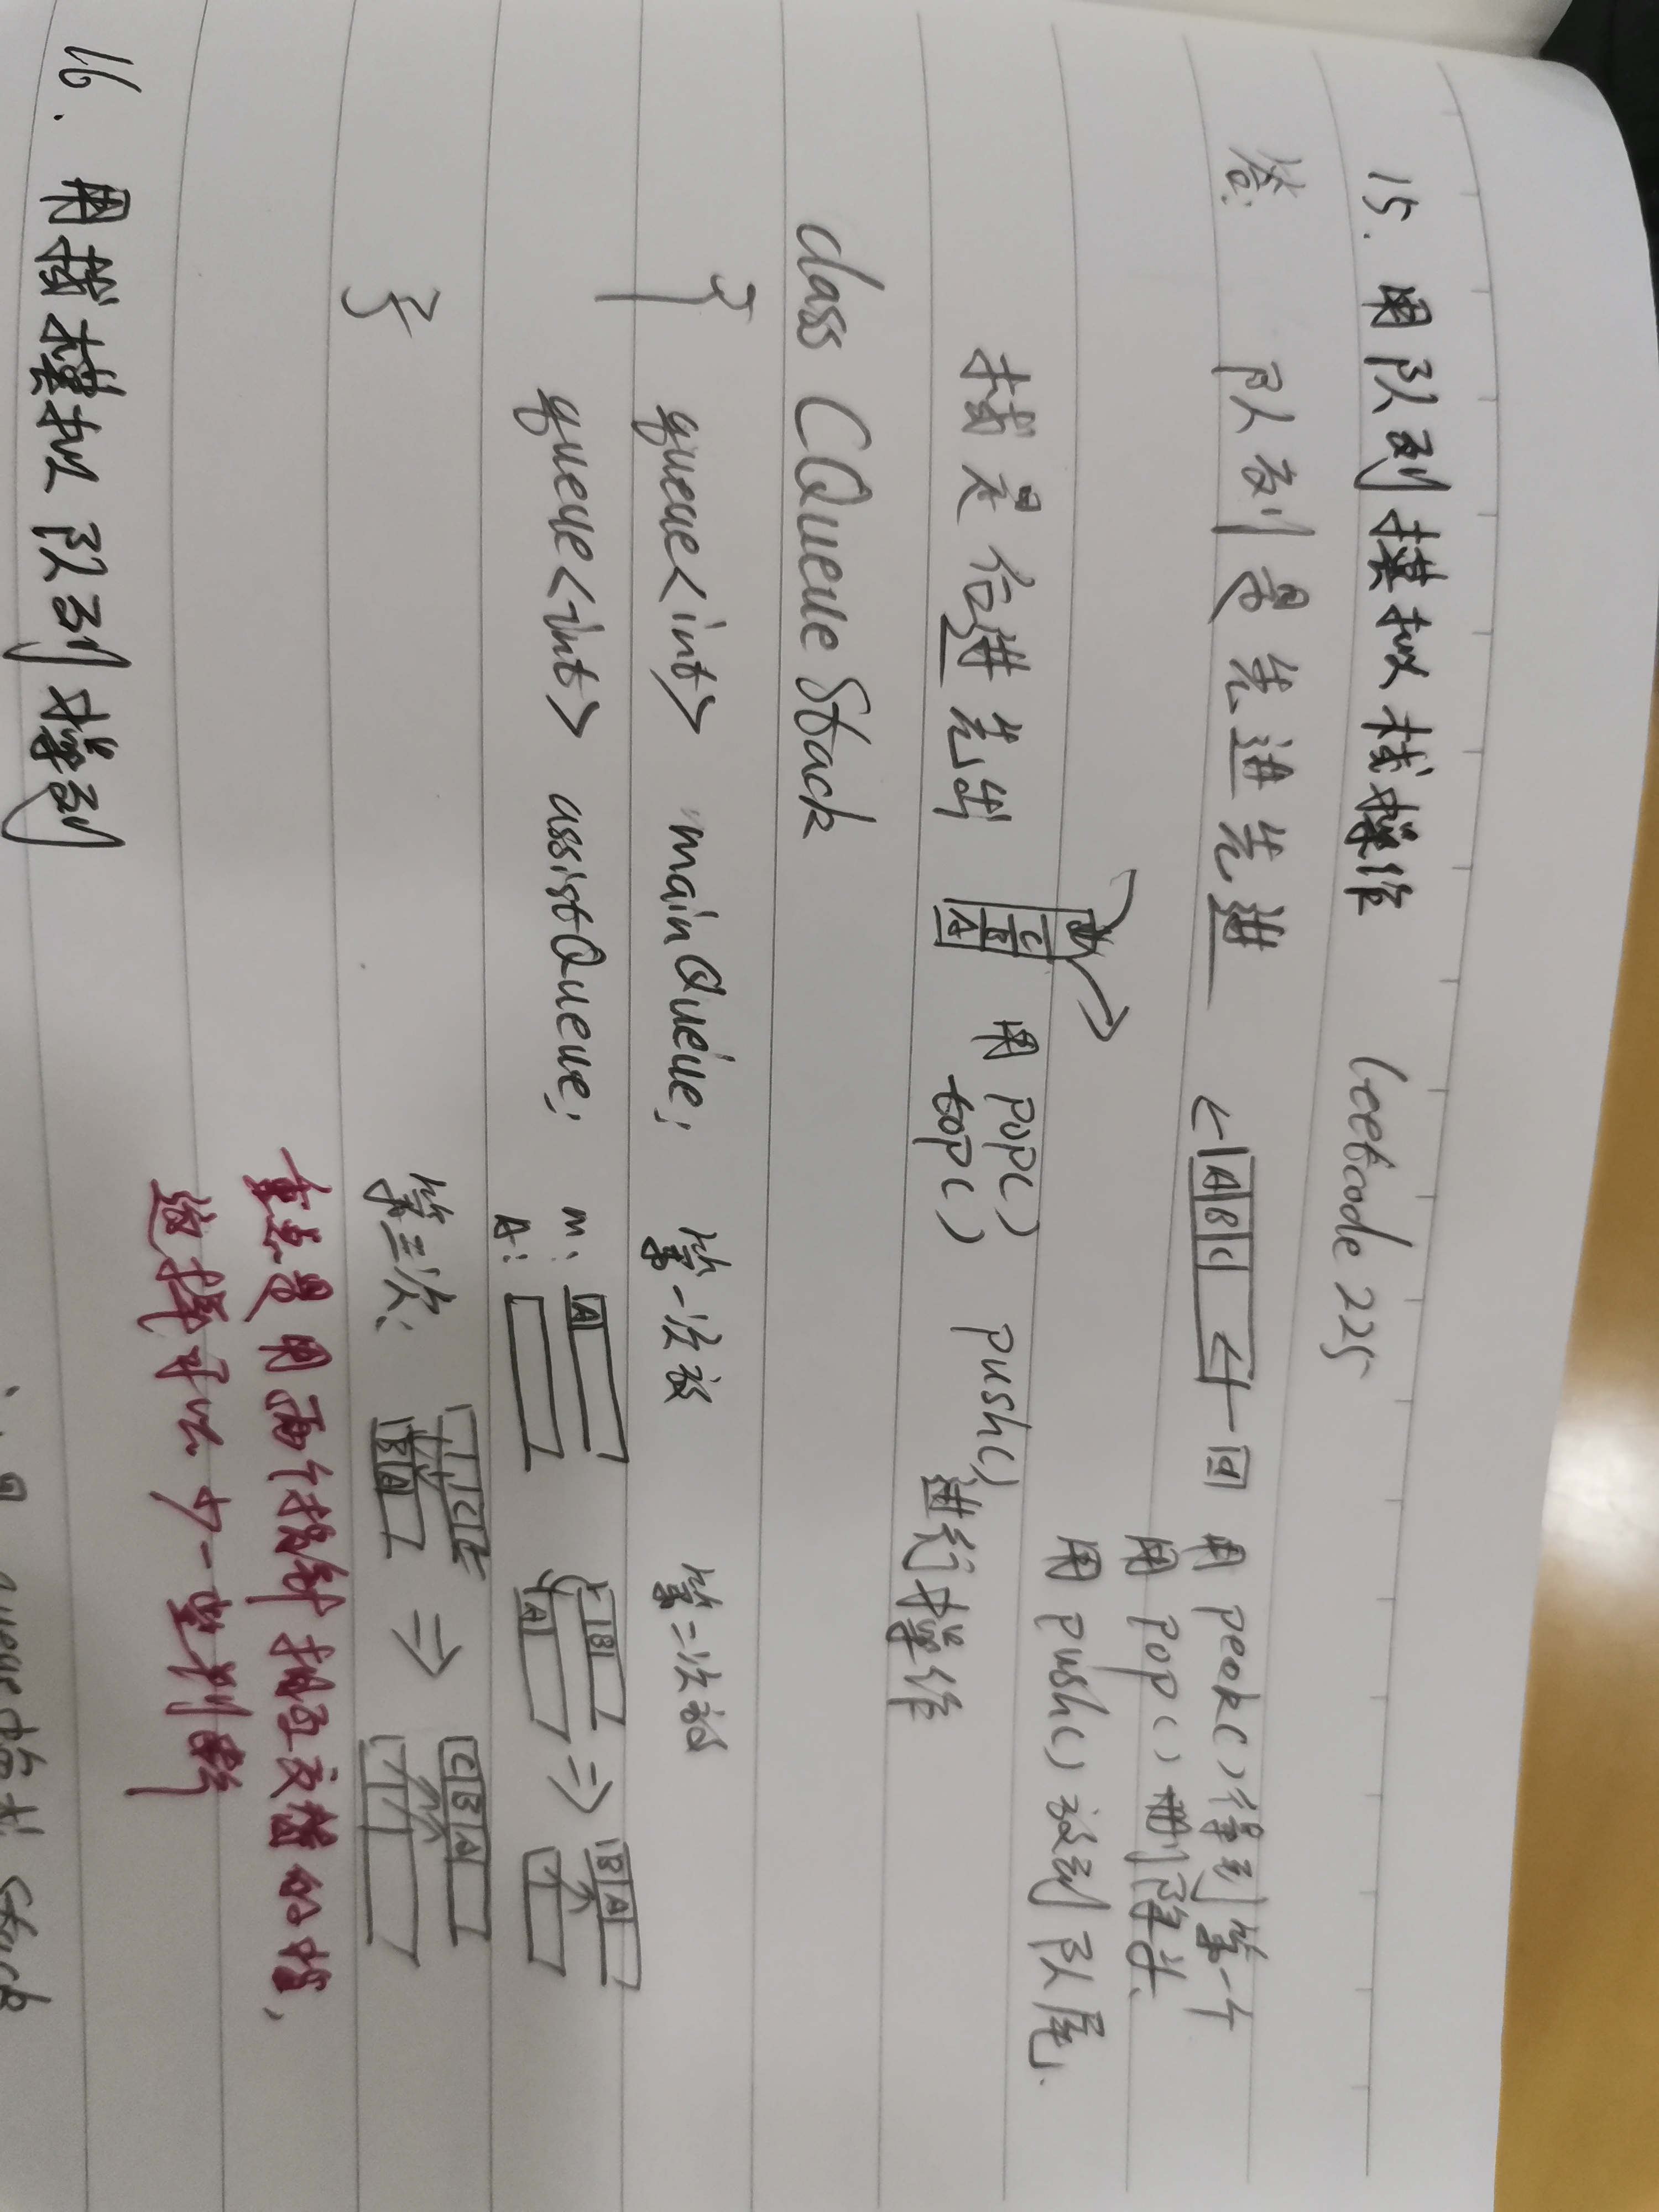 15. 用队列模拟栈操作 leetcode 225
答: 队列是先进先进
A B C d
用 peek()得到第一个
用 pop() 删除头、
用 push() 放到队尾.
栈是后进先出
C
B
A
用 pop() push()
top() 进行操作
class CQueueStack
{
queue<int> mainQueue; 第一次放 第二次放
queue<int> assistQueue; m: A B B A
A: A
} 第三次: C C B A
B A
重点是用两个指针相互交替的指,
这样可以少一些判断
16. 用栈模拟队列操列
queue stack